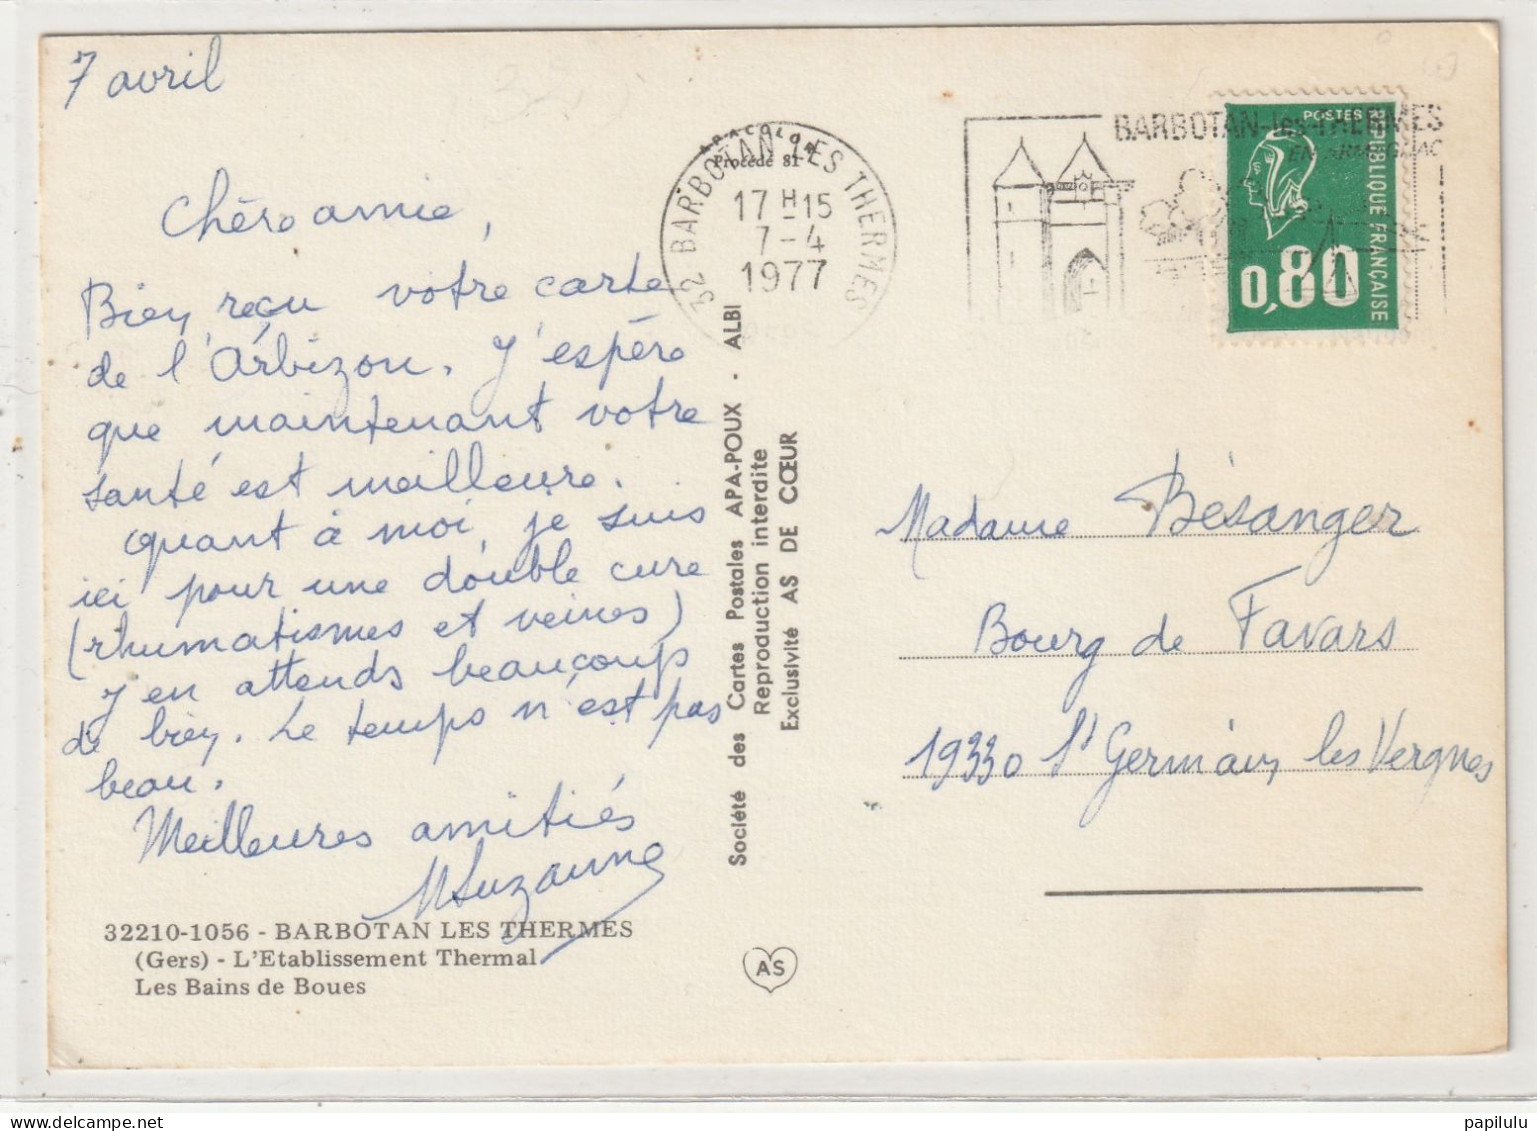 7 avril
Chère amie,
Bien reçu votre carte
de l'Arbizon. J'espère
que maintenant votre
santé est meilleure.
Quant à moi, je suis
ici pour une double cure
(rhumatismes et veines)
J'en attends beaucoup
de bien. Le temps n'est pas
beau.
Meilleures amitiés
Suzanne
32210-1056 - BARBOTAN LES THERMES
(Gers) - L'Etablissement Thermal
Les Bains de Boues
APACOLOR
Procédé 81
32 BARBOTAN LES THERMES
17 H 15
7-4
1977
Société des Cartes Postales APA-POUX - ALBI
Reproduction interdite
Exclusivité AS DE CŒUR
AS
BARBOTAN-les-THERMES
EN ARMAGNAC
POSTES
0,80
RÉPUBLIQUE FRANÇAISE
Madame Bésanger
Bourg de Favars
19330 St Germain les Vergnes
papilulu